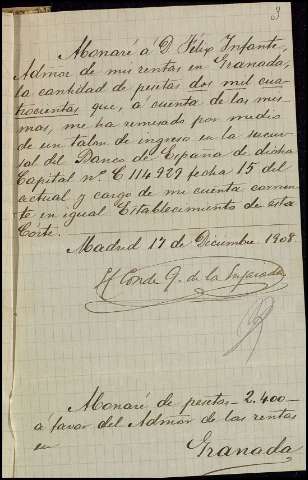 3
Monaré á D. Félix Infante,
Admor de mis rentas en Granada,
la cantidad de pesetas dos mil cua-
trocientas que, á cuenta de las mis-
mas, me ha remesado por medio
de un talon de ingreso en la sucur-
sal del Banco de España de dicha
Capital nº C 114.929 fecha 15 del
actual y cargo de mi cuenta corrien-
te en igual Establecimiento de esta
Córte.
Madrid 17 de Diciembre 1908.
El Conde G. de la
Monaré de pesetas - 2.400 -
á favor del Admor de las rentas
en
Granada